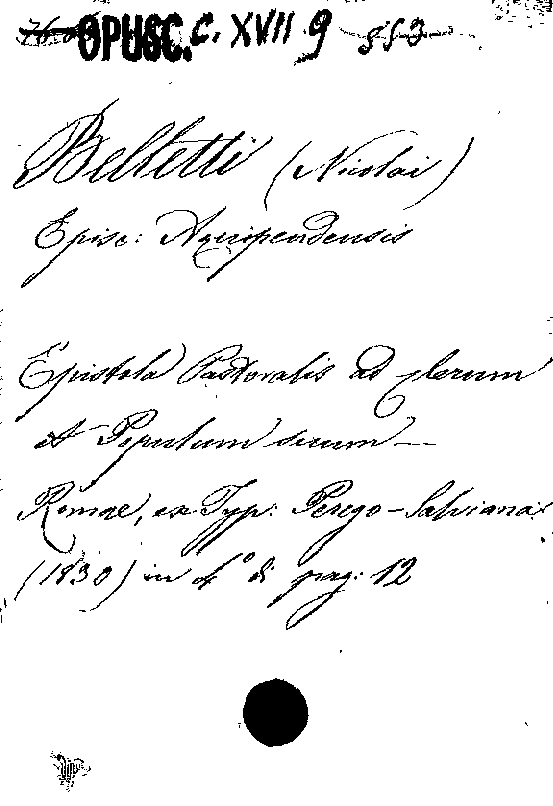 OPUSC. C. XVII 9
Belletti (Nicolai)
Episc: Aquipendensis
Epistola Pastoralis ad Clerum
et Populum suum —
Romae, ex Typ: Perego-Salviana
(1830) in 4° di pag: 12